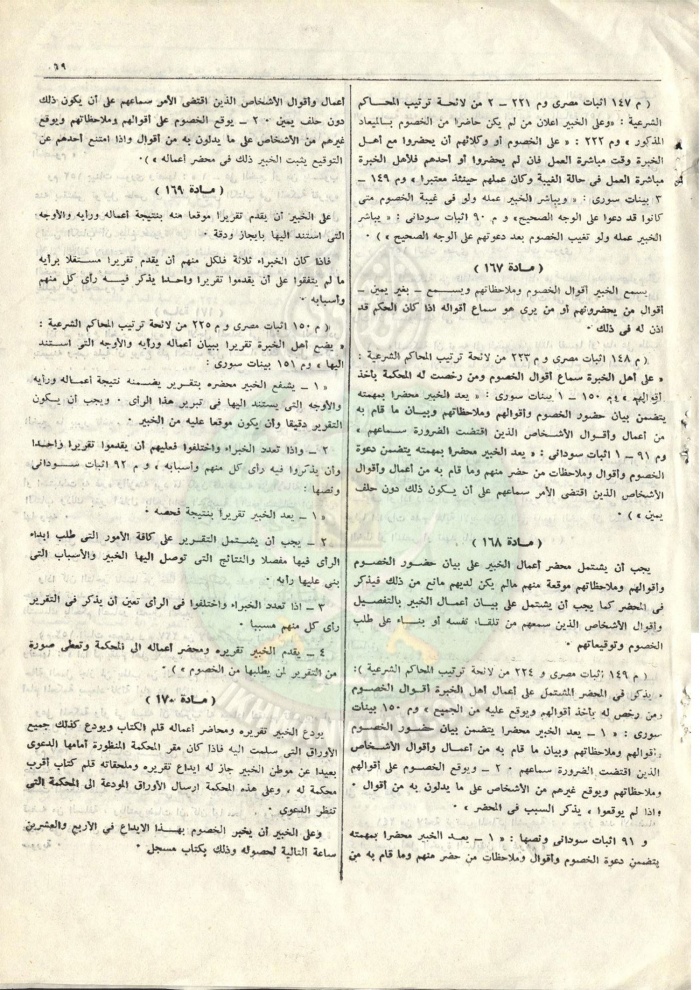 ٦٩
( م ١٤٧ اثبات مصرى وم ٢٢١ ــ ٢ من لائحة ترتيب المحاكم
الشرعية : «وعلى الخبير اعلان من لم يكن حاضرا من الخصوم بالميعاد
المذكور » وم ٢٢٢ : « على الخصوم أو وكلائهم أن يحضروا مع أهل
الخبرة وقت مباشرة العمل فان لم يحضروا أو أحدهم فلأهل الخبرة
مباشرة العمل فى حالة الغيبة وكان عملهم حينئذ معتبرا » وم ١٤٩ ــ
٣ بينات سورى : « ويباشر الخبير عمله ولو فى غيبة الخصوم متى
كانوا قد دعوا على الوجه الصحيح» و م ٩٠ اثبات سودانى : « يباشر
الخبير عمله ولو تغيب الخصوم بعد دعوتهم على الوجه الصحيح » )٠
( مــادة ١٦٧ )
يسمع الخبير أقوال الخصوم وملاحظاتهم ويسمع ــ بغير يمين ــ
أقوال من يحضرونهم أو من يرى هو سماع أقواله اذا كان الحكم قد
اذن له فى ذلك ٠
( م ١٤٨ اثبات مصرى وم ٢٢٣ من لائحة ترتيب المحاكم الشرعية :
« على أهل الخبرة سماع أقوال الخصوم ومن رخصت له المحكمة بأخذ
أقوالهم » وم ١٥٠ ــ ١ بينات سورى : « يعد الخبير محضرا بمهمته
يتضمن بيان حضور الخصوم وأقوالهم وملاحظاتهم وبيان ما قام به
من أعمال وأقوال الأشخاص الذين اقتضت الضرورة سماعهم »
وم ٩١ ــ ١ اثبات سودانى : « يعد الخبير محضرا بمهمته يتضمن دعوة
الخصوم وأقوال وملاحظات من حضر منهم وما قام به من أعمال وأقوال
الأشخاص الذين اقتضى الأمر سماعهم على أن يكون ذلك دون حلف
يمين » ) ٠
( مادة ١٦٨ )
يجب أن يشتمل محضر أعمال الخبير على بيان حضور الخصوم
وأقوالهم وملاحظاتهم موقعة منهم مالم يكن لديهم مانع من ذلك فيذكر
فى المحضر كما يجب أن يشتمل على بيان أعمال الخبير بالتفصيل
وأقوال الأشخاص الذين سمعهم من تلقاء نفسه أو بناء على طلب
الخصوم وتوقيعاتهم ٠
( م ١٤٩ اثبات مصرى و م ٢٢٤ من لائحة ترتيب المحاكم الشرعية ):
«يذكر فى المحضر المشتمل على أعمال أهل الخبرة أقوال الخصوم
ومن رخص له بأخذ أقوالهم ويوقع عليه من الجميع » وم ١٥٠ بينات
سورى : « ١ ــ يعد الخبير محضرا يتضمن بيان حضور الخصوم
وأقوالهم وملاحظاتهم وبيان ما قام به من أعمال وأقوال الأشخاص
الذين اقتضت الضرورة سماعهم ٠ ٢ ــ ويوقع الخصوم على أقوالهم
وملاحظاتهم ويوقع غيرهم من الأشخاص على ما يدلون به من أقوال ٠
واذا لم يوقعوا » يذكر السبب فى المحضر »
و ٩١ اثبات سودانى ونصها : « ١ ــ بعد الخبير محضرا بمهمته
يتضمن دعوة الخصوم وأقوال وملاحظات من حضر منهم وما قام به من
أعمال وأقوال الأشخاص الذين اقتضى الأمر سماعهم على أن يكون ذلك
دون حلف يمين ٠ ٢ ــ يوقع الخصوم على أقوالهم وملاحظاتهم ويوقع
غيرهم من الأشخاص على ما يدلون به من أقوال واذا امتنع أحدهم عن
التوقيع يثبت الخبير ذلك فى محضر أعماله » )٠
( مــادة ١٦٩ )
على الخبير أن يقدم تقريرا موقعا منه بنتيجة أعماله ورأيه والأوجه
التى استند اليها بايجاز ودقة ٠
فاذا كان الخبراء ثلاثة فلكل منهم أن يقدم تقريرا مستقلا برأيه
ما لم يتفقوا على أن يقدموا تقريرا واحدا يذكر فيه رأى كل منهم
وأسبابه ٠
( م ١٥٠ اثبات مصرى و م ٢٢٥ من لائحة ترتيب المحاكم الشرعية :
« يضع أهل الخبرة تقريرا ببيان أعماله ورأيه والأوجه التى استند
اليها » وم ١٥١ بينات سورى :
« ١ ــ يشفع الخبير محضره بتقرير يضمنه نتيجة أعماله ورأيه
والأوجه التى يستند اليها فى تبرير هذا الرأى ٠ ويجب أن يكون
التقرير دقيقا وأن يكون موقعا عليه من الخبير ٠
٢ ــ واذا تعدد الخبراء واختلفوا فعليهم أن يقدموا تقريرا واحدا
وأن يذكروا فيه رأى كل منهم وأسبابه » و م ٩٢ اثبات سودانى
ونصها :
« ١ ــ يعد الخبير تقريرا بنتيجة فحصه ٠
٢ ــ يجب أن يشتمل التقرير على كافة الأمور التى طلب ابداء
الرأى فيها مفصلا والنتائج التى توصل اليها الخبير والأسباب التى
بنى عليها رأيه ٠
٣ ــ اذا تعدد الخبراء واختلفوا فى الرأى تعين أن يذكر فى التقرير
رأى كل منهم مسببا ٠
٤ ــ يقدم الخبير تقريره ومحضر أعماله الى المحكمة وتعطى صورة
من التقرير لمن يطلبها من الخصوم » ) ٠
( مــادة ١٧٠ )
يودع الخبير تقريره ومحاضر أعماله قلم الكتاب ويودع كذلك جميع
الأوراق التى سلمت اليه فاذا كان مقر المحكمة المنظورة أمامها الدعوى
بعيدا عن موطن الخبير جاز له ايداع تقريره وملحقاته قلم كتاب أقرب
محكمة له ، وعلى هذه المحكمة ارسال الأوراق المودعة الى المحكمة التى
تنظر الدعوى ٠
وعلى الخبير أن يخبر الخصوم بهــذا الايداع فى الأربع والعشرين
ساعة التالية لحصوله وذلك بكتاب مسجل ٠